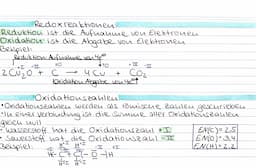 Redoxreaktionen
Reduktion ist die Aufnahme von Elektronen
Oxidation ist die Abgabe von Elektronen
Beispiel:
Reduktion Aufnahme von 4e⁻
2Cu₂O + C → 4Cu + CO₂
Oxidation Abgabe von 4e⁻
Oxidationszahlen
• Oxidationszahlen werden als römische Zahlen geschrieben
• In einer Verbindung ist die Summe aller Oxidationszahlen
gleich null
• Wasserstoff hat die Oxidationszahl +I
• Sauerstoff hat die Oxidationszahl -II
Beispiel:
EN(C) = 2,5
EN(O) = 3,4
EN(H) = 2,2
H-C-C-O-H